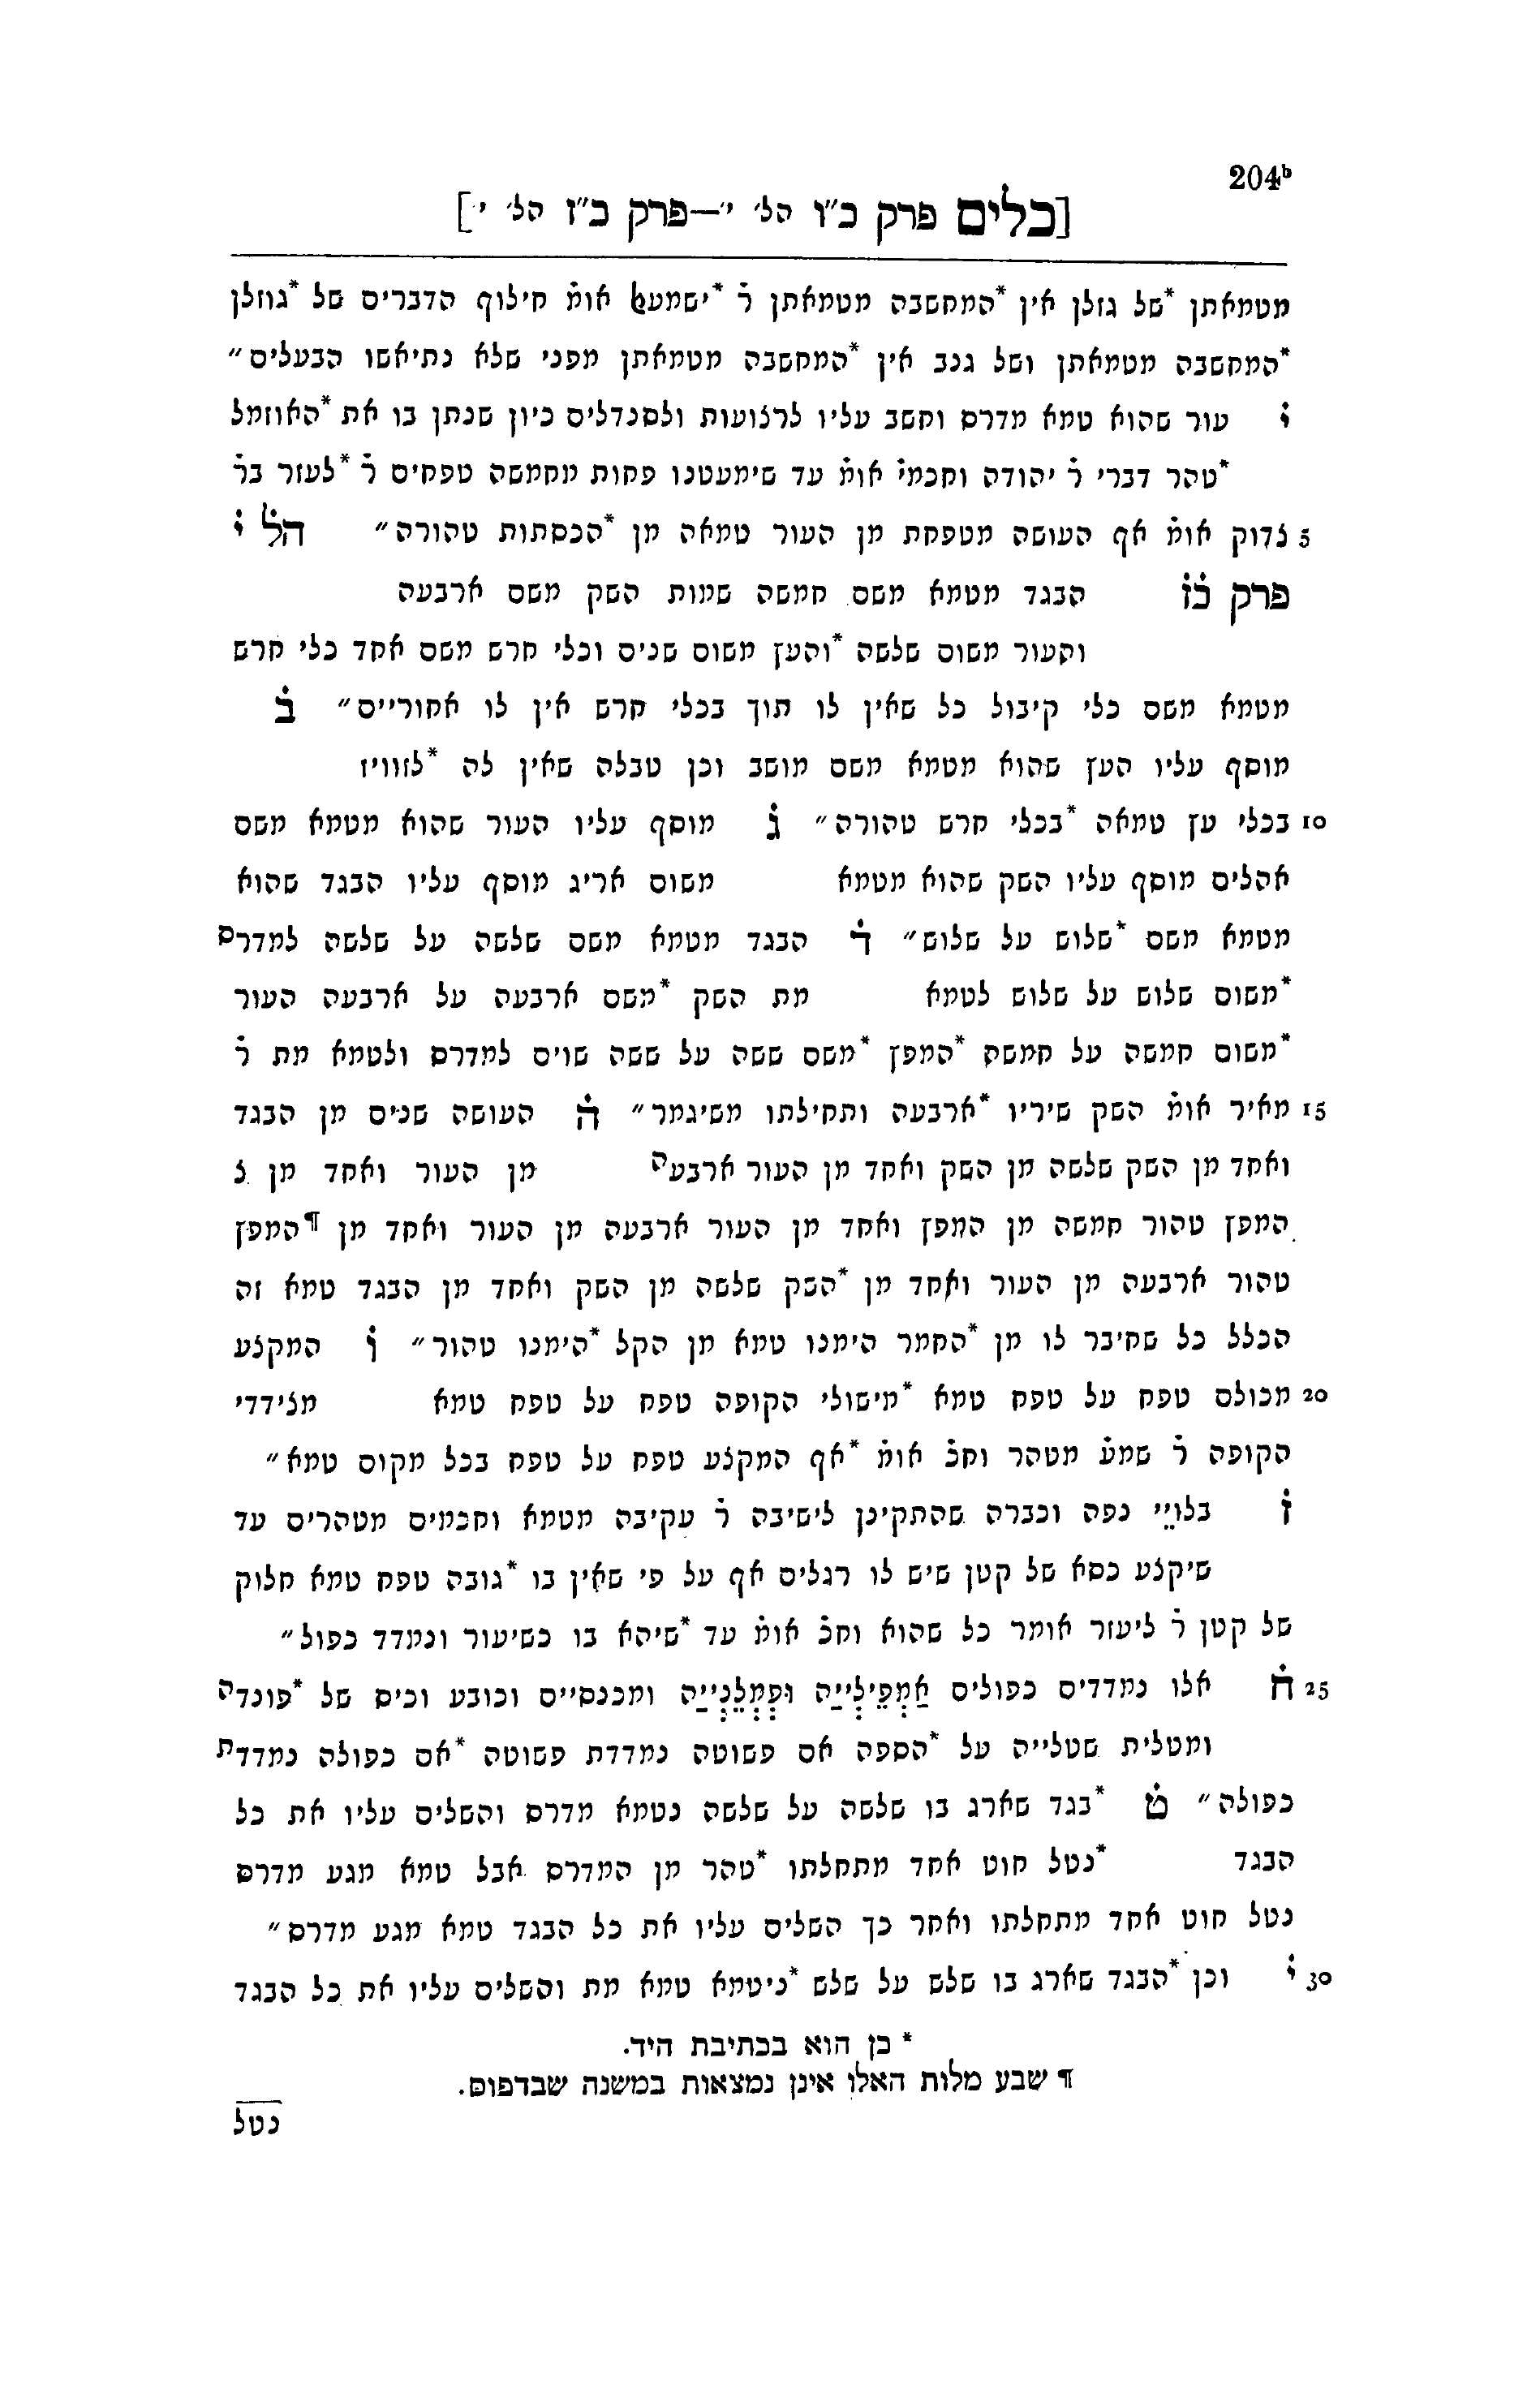 204ᵇ
[כלים פרק כ״ו הל׳ י׳—פרק כ״ז הל׳ י׳]
מטמאתן *של גזלן אין *המחשבה מטמאתן ר̇ *ישמעל אומ̇ חילוף הדברים של *גוזלן
*המחשבה מטמאתן ושל גנב אין *המחשבה מטמאתן מפני שלא נתיאשו הבעלים״
י̇ עור שהוא טמא מדרס וחשב עליו לרצועות ולסנדלים כיון שנתן בו את *האוזמל
*טהר דברי ר̇ יהודה וחכמי̇ אומ̇ עד שימעטנו פחות מחמשה טפחים ר̇ *לעזר בר̇
5 צדוק אומ̇ אף העושה מטפחת מן העור טמאה מן *הכסתות טהורה״ הל̇ י̇
פרק כ̇ז̇ הבגד מטמא משם חמשה שמות השק משם ארבעה
והעור משום שלשה *והעץ משום שנים וכלי חרש משם אחד כלי חרש
מטמא משם כלי קיבול כל שאין לו תוך בכלי חרש אין לו אחוריים״ ב̇
מוסף עליו העץ שהוא מטמא משם מושב וכן טבלה שאין לה *לזוויז
10 בכלי עץ טמאה *בכלי חרש טהורה״ ג̇ מוסף עליו העור שהוא מטמא משם
אהלים מוסף עליו השק שהוא מטמא משום אריג מוסף עליו הבגד שהוא
מטמא משם *שלוש על שלוש״ ד̇ הבגד מטמא משם שלשה על שלשה למדרס
*משום שלוש על שלוש לטמא מת השק *משם ארבעה על ארבעה העור
*משום חמשה על חמשה *המפץ *משם ששה על ששה שוים למדרס ולטמא מת ר̇
15 מאיר אומ̇ השק שיריו *ארבעה ותחילתו משיגמר״ ה̇ העושה שנים מן הבגד
ואחד מן השק שלשה מן השק ואחד מן העור ארבעה מן העור ואחד מן ג
המפץ טהור חמשה מן המפץ ואחד מן העור ארבעה מן העור ואחד מן ¶המפץ
טהור ארבעה מן העור ואחד מן *השק שלשה מן השק ואחד מן הבגד טמא זה
הכלל כל שחיבר לו מן *החמר הימנו טמא מן הקל *הימנו טהור״ ו̇ המקצע
20 מכולם טפח על טפח טמא *מישולי הקופה טפח על טפח טמא מצידדי
הקופה ר̇ שמע̇ מטהר וחכ̇ אומ̇ *אף המקצע טפח על טפח בכל מקום טמא״
ז̇ בלויי נפה וכברה שהתקינן לישיבה ר̇ עקיבה מטמא וחכמים מטהרים עד
שיקצע כסא של קטן שיש לו רגלים אף על פי שאין בו *גובה טפח טמא חלוק
של קטן ר̇ ליעזר אומר כל שהוא וחכ̇ אומ̇ עד *שיהא בו כשיעור ונמדד כפול״
25 ח̇ אלו נמדדים כפולים אַמְפֵּילְיַיה וּפְמְלֵנְיַיה ומכנסיים וכובע וכיס של *פונדה
ומטלית שטלייה על *הספה אם פשוטה נמדדת פשוטה *אם כפולה נמדדת
כפולה״ ט̇ *בגד שארג בו שלשה על שלשה נטמא מדרס והשלים עליו את כל
הבגד *נטל חוט אחד מתחלתו *טהר מן המדרס אבל טמא מגע מדרס
נטל חוט אחד מתחלתו ואחר כך השלים עליו את כל הבגד טמא מגע מדרס״
30 י̇ וכן *הבגד שארג בו שלש על שלש *ניטמא טמא מת והשלים עליו את כל הבגד
* כן הוא בכתיבת היד.
¶ שבע מלות האלו אינן נמצאות במשנה שבדפוס.
נטל